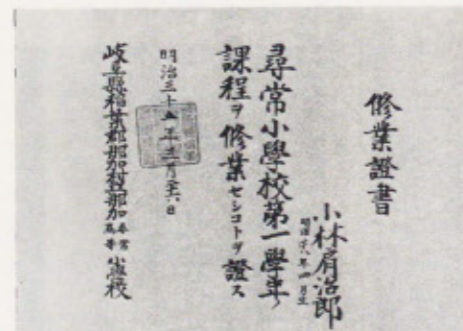 修業證書
小林肩治郎
明治廿八年四月生
尋常小學校第一學年ノ
課程ヲ修業セシコトヲ證ス
明治三十五年三月廿六日
岐阜縣稲葉郡那加村那加尋常高等小學校